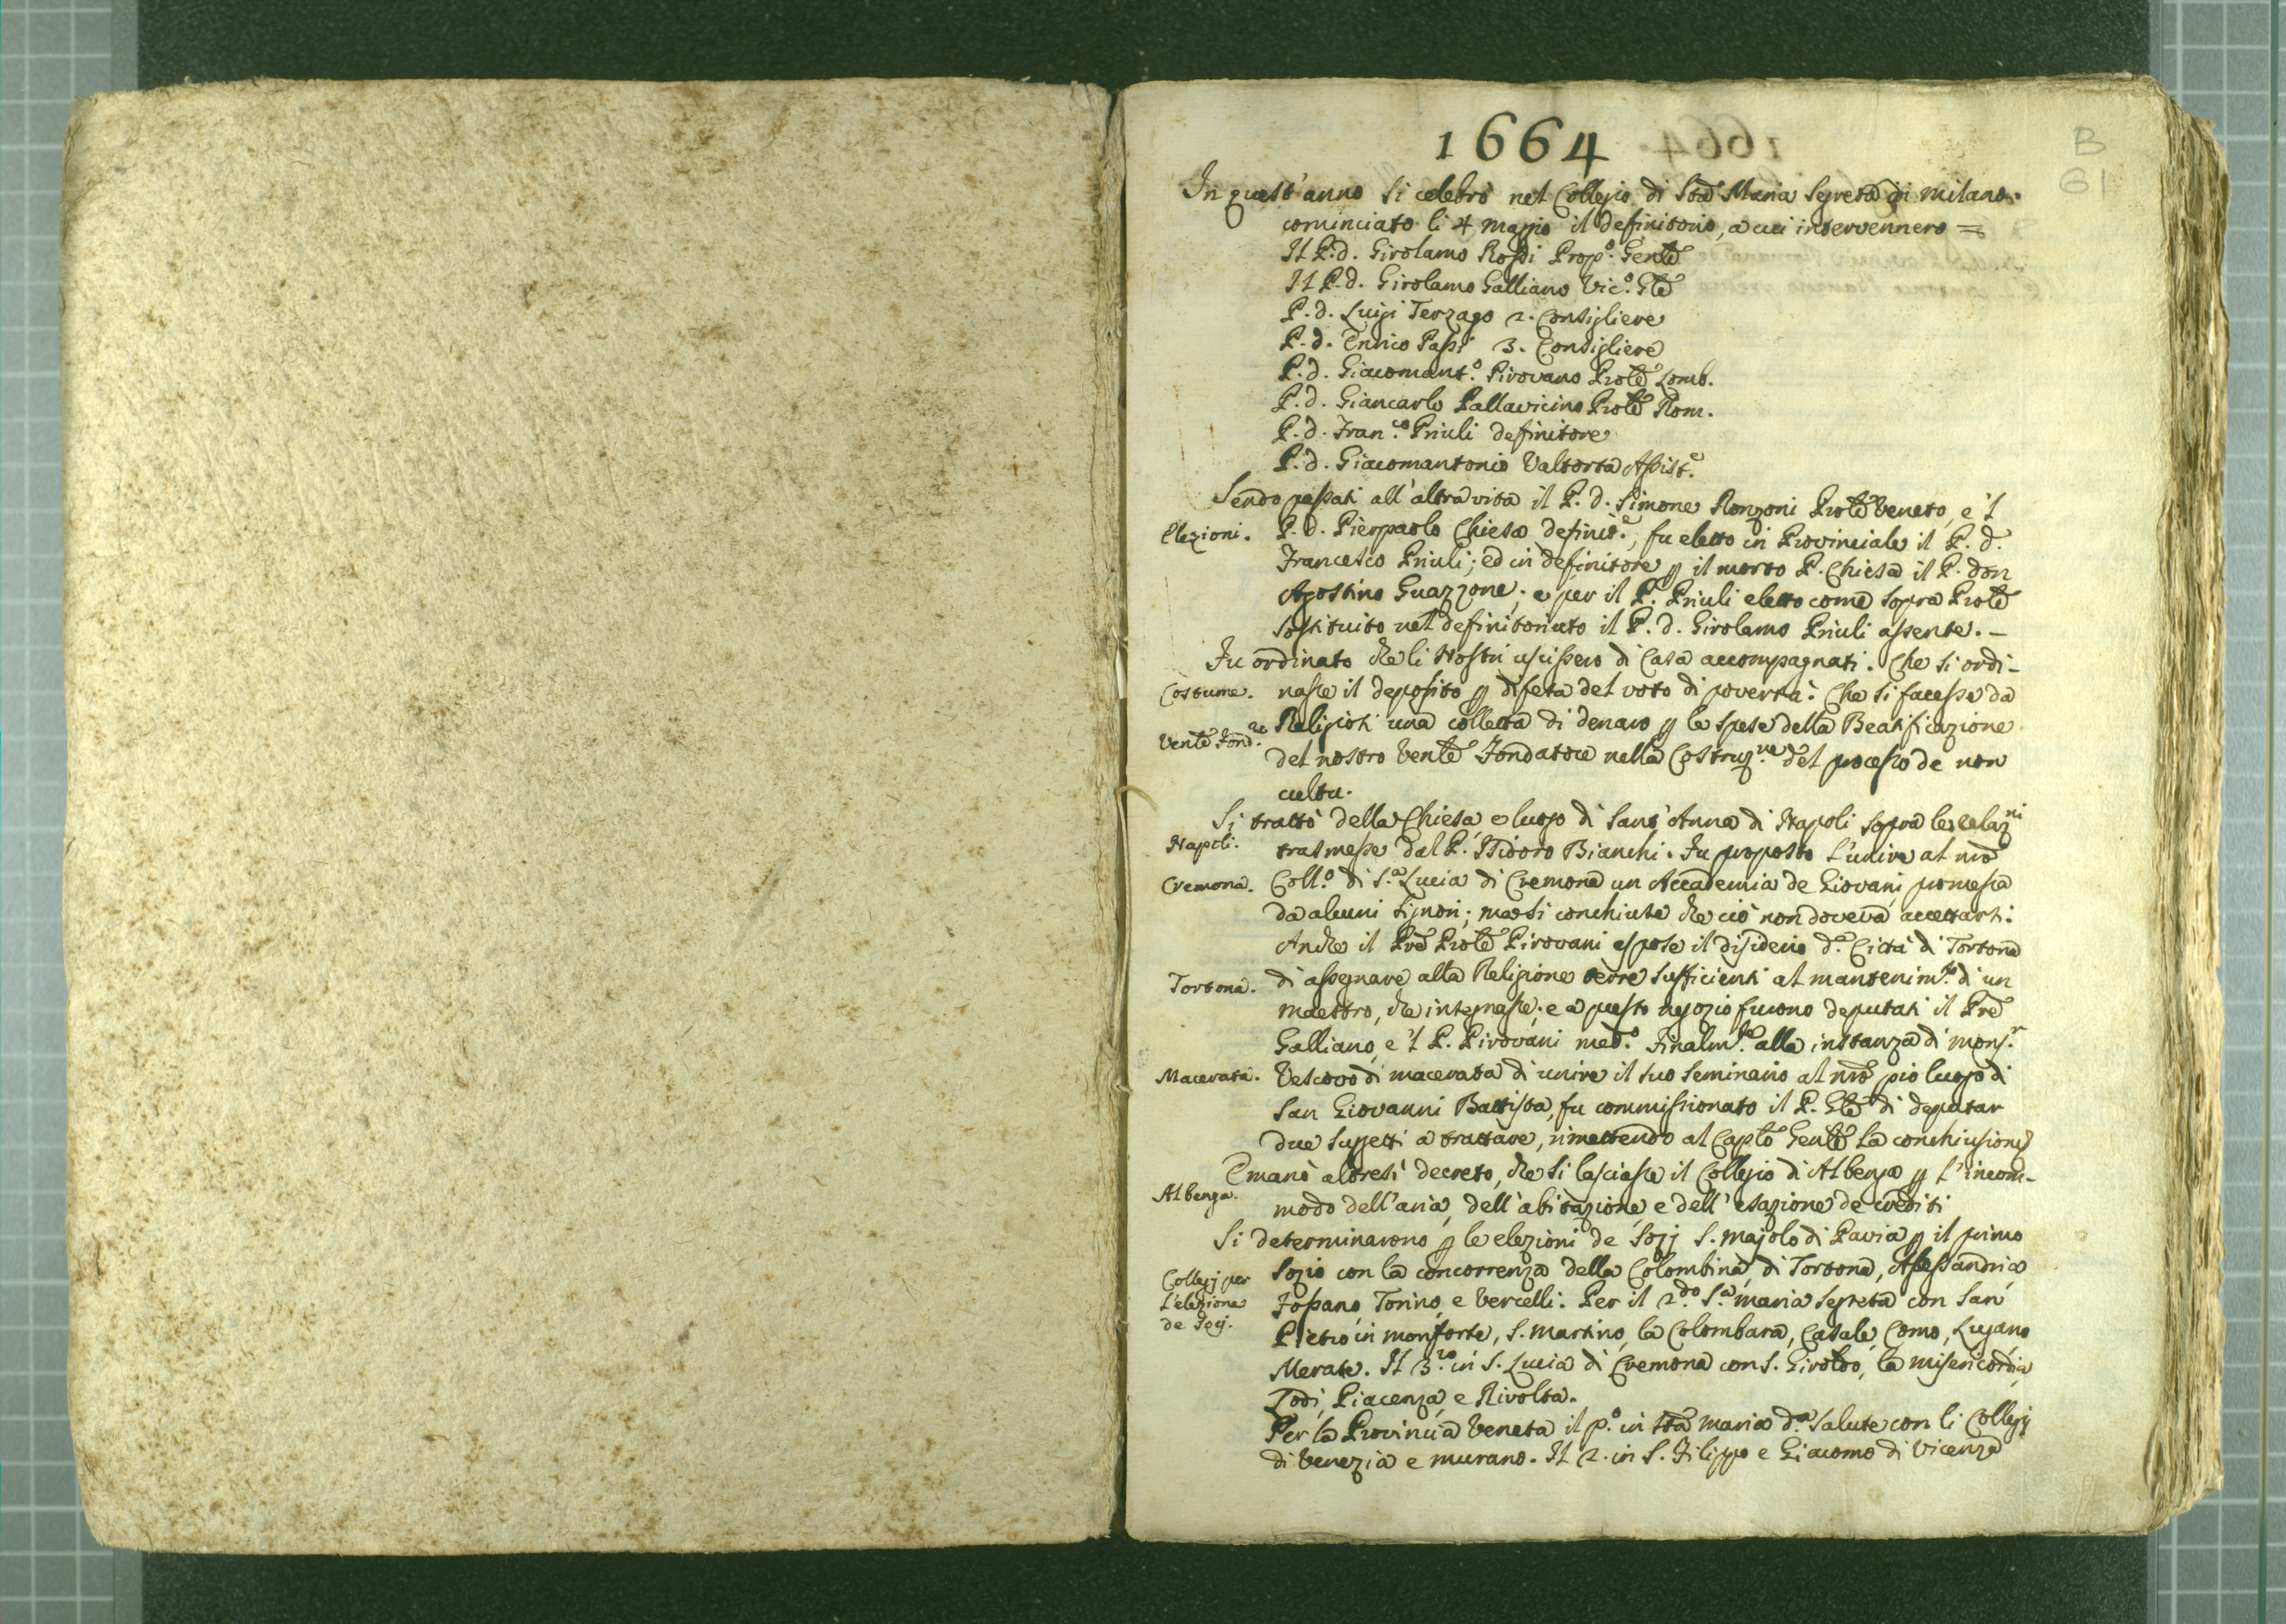 1664
B
61
In quest'anno si celebrò nel Collegio di Sta Maria Segreta di Milano.
cominciato li 4 Maggio il definitorio, a cui intervennero =
Il P. d. Girolamo Rossi Prop.o Gentē
Il P. d. Girolamo Galliano Vic.o Gtē
P. d. Luigi Terzago 2. Consigliere
P. d. Enrico Passi 3. Consigliere
P. d. Giacomant.o Pirovano Protē Lomb.
P. d. Giancarlo Pallavicino Protē Rom.
P. d. Fran.co Priuli definitore
P. d. Giacomantonio Valtorta Assist.e
Sendo passati all'altra vita il P. d. Simone Ronzoni Protē Veneto, e 'l
Elezioni. P. d. Pierpaolo Chiesa definit.e, fu eletto in Provinciale il P. d.
Francesco Priuli; ed in definitore p il morto P. Chiesa il P. don
Agostino Guazzone; e per il P. Priuli eletto come sopra Protē
sostituito nel definitoriato il P. d. Girolamo Priuli assente. –
Fu ordinato che li Nostri uscissero di Casa accompagnati. Che si ordi-
Costume. nasse il deposito p difesa del voto di povertà: Che si facesse da
Ventē Fond.re Religiosi una colletta di denaro p le spese della Beatificazione
del nostro Ventē Fondatore nella Costruz.ne del processo de non
cultu.
Si trattò della Chiesa e luogo di Sant'Anna di Napoli sopra le relaz.ni
Napoli. trasmesse dal P. Isidoro Bianchi. Fu proposto l'unire al nrō
Cremona. Coll.o di S.a Lucia di Cremona un Accademia de Giovani, promessa
da alcuni signori; ma si conchiuse che ciò non doveva accettarsi:
Anche il Prē Protē Pirovani espose il disiderio d.a Città di Tortona
Tortona. di assegnare alla Religione terre sufficienti al mantenim.to di un
maestro, che integnasse; e a questo negozio furono deputati il Prē
Galliano, e 'l P. Pirovani med.o Finalm.te alla instanza di Mons.r
Macerata. Vescovo di Macerata di unire il suo seminario al nrō pio luogo di
San Giovanni Battista, fu commissionato il P. Gtē di deputar
due suggetti a trattare, rimettendo al Capto Gentē la conchiusione
Emanò altresì decreto, che si lasciasse il Collegio di Albenga p l'incom-
Albenga. modo dell'aria, dell'abitazione, e dell'esazione de crediti
Si determinarono p le elezioni de Sozj S. Majolo di Pavia p il primo
Collegj per l'elezione de Socj. Sozio con la concorrenza della Colombina, di Tortona, Alessandria
Fossano, Torino, e Vercelli: Per il 2.do S.a Maria Segreta con San
Pietro in Monforte, S. Martino, la Colombara, Casale, Como, Lugano
Merate. Il 3.zo in S. Lucia di Cremona con S. Giroldo, la Misericordia,
Lodi, Piacenza, e Rivolta.
Per la Provincia Veneta il p.o in Sta Maria d.a Salute con li Collegj
di Venezia e Murano. Il 2. in S. Filippo e Giacomo di Vicenza